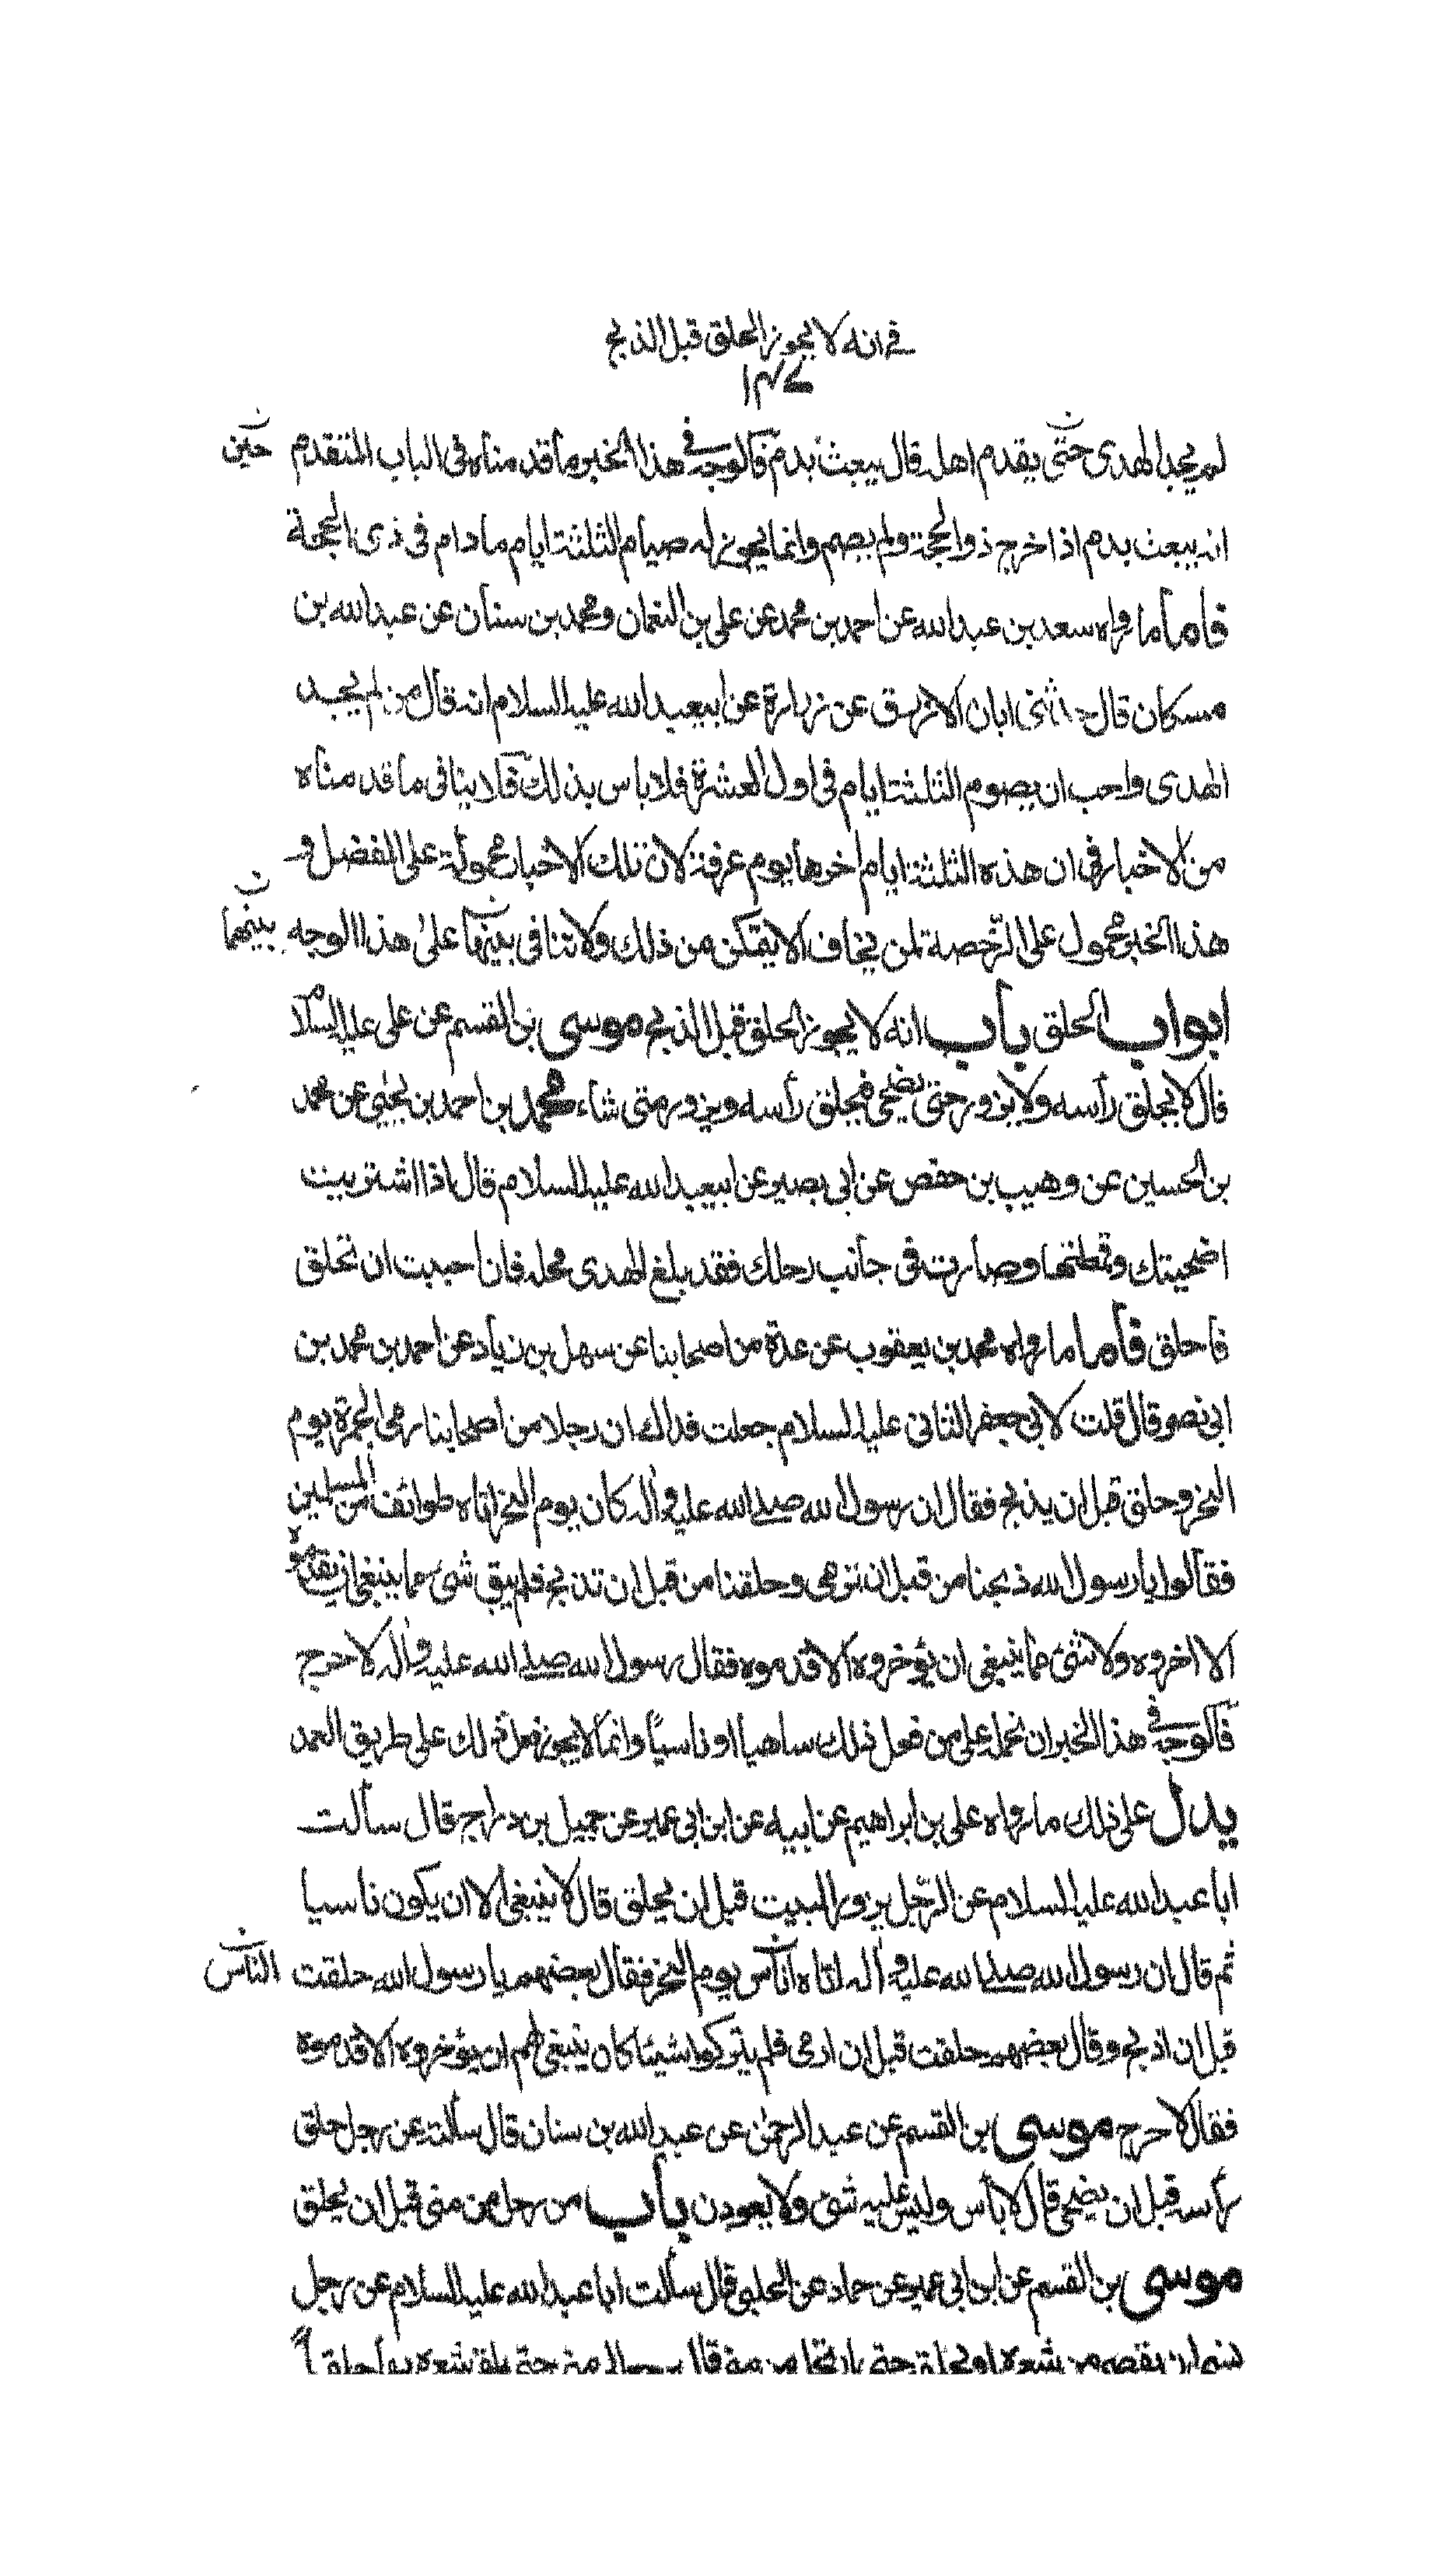 في انه لا يجوز الحلق قبل الذبح
لم يجد الهدى حتى يقدم اهله قال يبعث بدم فالوجه في هذا الخبر ما قد مناه فى الباب المتقدم حين
انه يبعث بدم اذا خرج ذو الحجة ولم يصم وانما يجوز له صيام الثلثة ايام ما دام فى ذى الحجة
فاما ما رواه سعد بن عبد الله عن احمد بن محمد عن على بن النعمان ومحمد بن سنان عن عبد الله بن
مسكان قال حدثنى ابان الازرق عن زرارة عن ابيعبد الله عليه السلام انه قال من لم يجد
الهدى واحب ان يصوم الثلثة ايام فى اول العشرة فلا باس بذلك فلا ينافى ما قد مناه
من الاخبار فى ان هذه الثلثة ايام اخرها يوم عرفة لان تلك الاخبار محمولة على الفضل و
هذا الخبر محمول على الرخصة لمن يخاف الا يتمكن من ذلك ولا تنافى بينها على هذا الوجه بينهما
ابواب الحلق باب انه لا يجوز الحلق قبل الذبح موسى بن القسم عن على عليه السلام
قال لا يحلق رأسه ولا يزور حتى يضحى فيحلق رأسه ويزور متى شاء محمد بن احمد بن يحيى عن محمد
بن الحسين عن وهيب بن حفص عن ابى بصير عن ابيعبد الله عليه السلام قال اذا اشتريت
اضحيتك وقمطتها وصارت فى جانب رحلك فقد بلغ الهدى محله فان احببت ان تحلق
فاحلق فاما ما رواه محمد بن يعقوب عن عدة من اصحابنا عن سهل بن زياد عن احمد بن محمد بن
ابى نصر قال قلت لابى جعفر الثانى عليه السلام جعلت فداك ان رجلا من اصحابنا رمى الجمرة يوم
النحر وحلق قبل ان يذبح فقال ان رسول الله صلى الله عليه واله كان يوم النحر اتاه طوائف من المسلمين
فقالوا يا رسول الله ذبحنا من قبل ان نرمى وحلقنا من قبل ان تذبح فلم يبق شىء مما ينبغى ان يقدموه
الا اخروه ولا شىء مما ينبغى ان يؤخروه الا قدموه فقال رسول الله صلى الله عليه واله لا حرج
فالوجه في هذا الخبر ان نحمله على من فعل ذلك ساهيا او ناسيا وانما لا يجوز فعل ذلك على طريق العمد
يدل على ذلك ما رواه على بن ابراهيم عن ابيه عن ابن ابى عمير عن جميل بن دراج قال سألت
ابا عبد الله عليه السلام عن الرجل يزور البيت قبل ان يحلق قال لا ينبغى الا ان يكون ناسيا
ثم قال ان رسول الله صلى الله عليه واله اتاه اناس يوم النحر فقال بعضهم يا رسول الله حلقت الناس
قبل ان اذبح وقال بعضهم حلقت قبل ان ارمى فلم يتركوا شيئا كان ينبغى لهم ان يؤخروه الا قدموه
فقال لا حرج موسى بن القسم عن عبد الرحمن عن عبد الله بن سنان قال سألته عن رجل حلق
رأسه قبل ان يضحى قال لا بأس وليس عليه شىء ولا يعودن باب من رحل من منى قبل ان يحلق
موسى بن القسم عن ابن ابى عمير عن حماد عن الحلبى قال سألت ابا عبد الله عليه السلام عن رجل